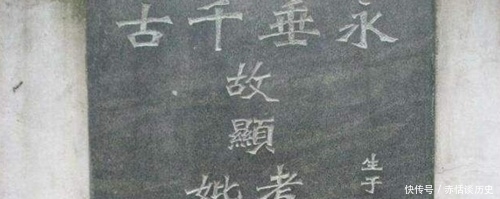 永垂千古
故顯
考妣
生于
快传号/赤恬谈历史